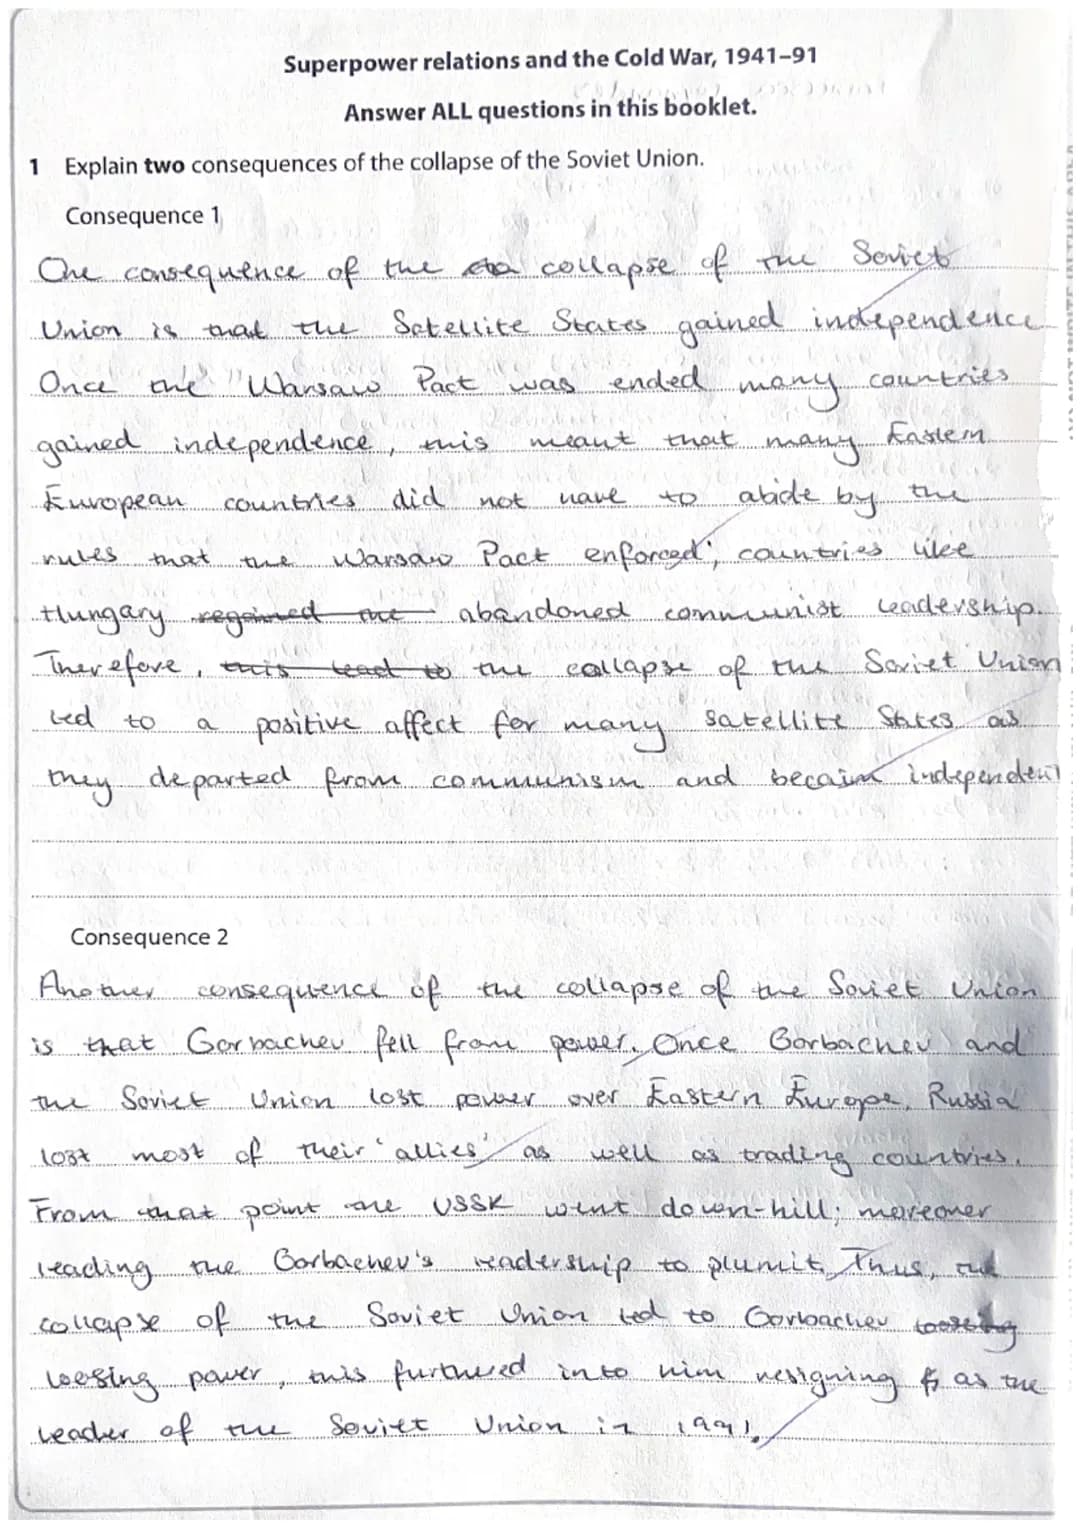 Superpower relations and the Cold War, 1941–91
Answer ALL questions in this booklet.
1 Explain two consequences of the collapse of the Soviet Union.
Consequence 1
One consequence of the collapse of the Soviet
Union is that the Satellite States gained independence
Once the Warsaw Pact was ended many countries
gained independence, this meant that many Eastern
European countries did not have to abide by the
rules that the Warsaw Pact enforced; countries like
Hungary regained the abandoned communist leadership.
Therefore, this lead to the collapse of the Soviet Union
led to a positive affect for many satellite States as
they departed from communism and becaim independent
Consequence 2
Another consequence of the collapse of the Soviet Union
is that Gorbachev fell from power. Once Gorbachev and
the Soviet Union lost power over Eastern Europe, Russia
lost most of their 'allies' as well as trading countries.
From that point the USSR went down-hill; moreover
leading the Gorbachev's leadership to plumit. Thus, the
collapse of the Soviet Union led to Gorbachev loosing
loosing power, this furthered into him resigning as the
leader of the Soviet Union in 1991.